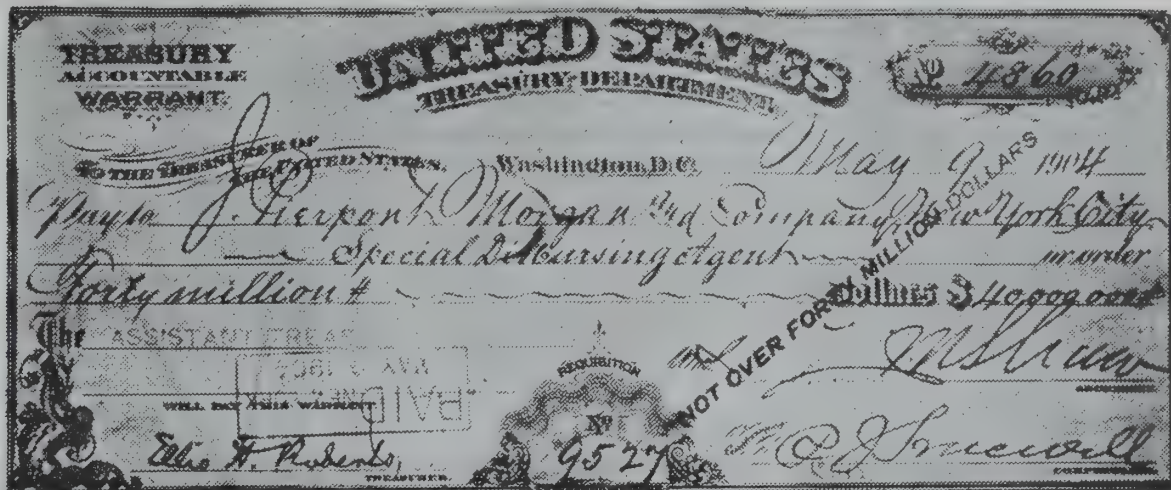 TREASURY
ACCOUNTABLE
WARRANT.
UNITED STATES
TREASURY DEPARTMENT,
No 4860
TO THE TREASURER OF
THE UNITED STATES,
Washington, D.C. May 9 1904
Pay to J. Pierpont Morgan and Company, New York City
Special Disbursing Agent or order
Forty million # Dollars $40,000,000
NOT OVER FORTY MILLION DOLLARS
The ASSISTANT TREAS
PAID
WILL PAY THIS WARRANT
Ellis H. Roberts,
TREASURER.
REQUISITION
No
9527